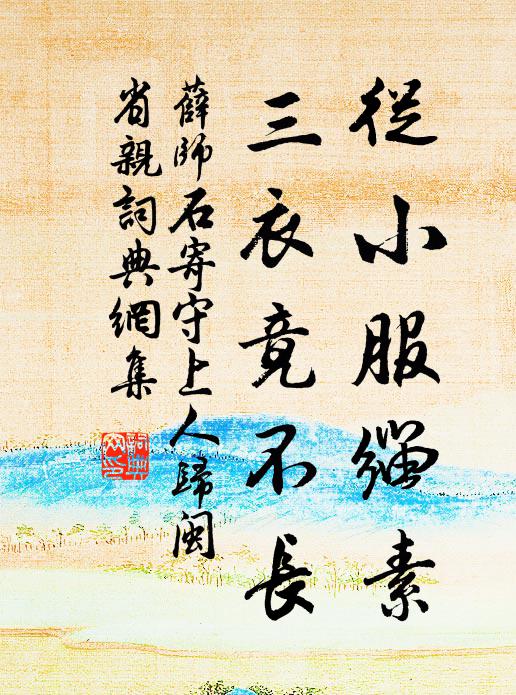 從小服緇素
三衣竟不長
薛師石寄守上人歸閩
省親詞典網集